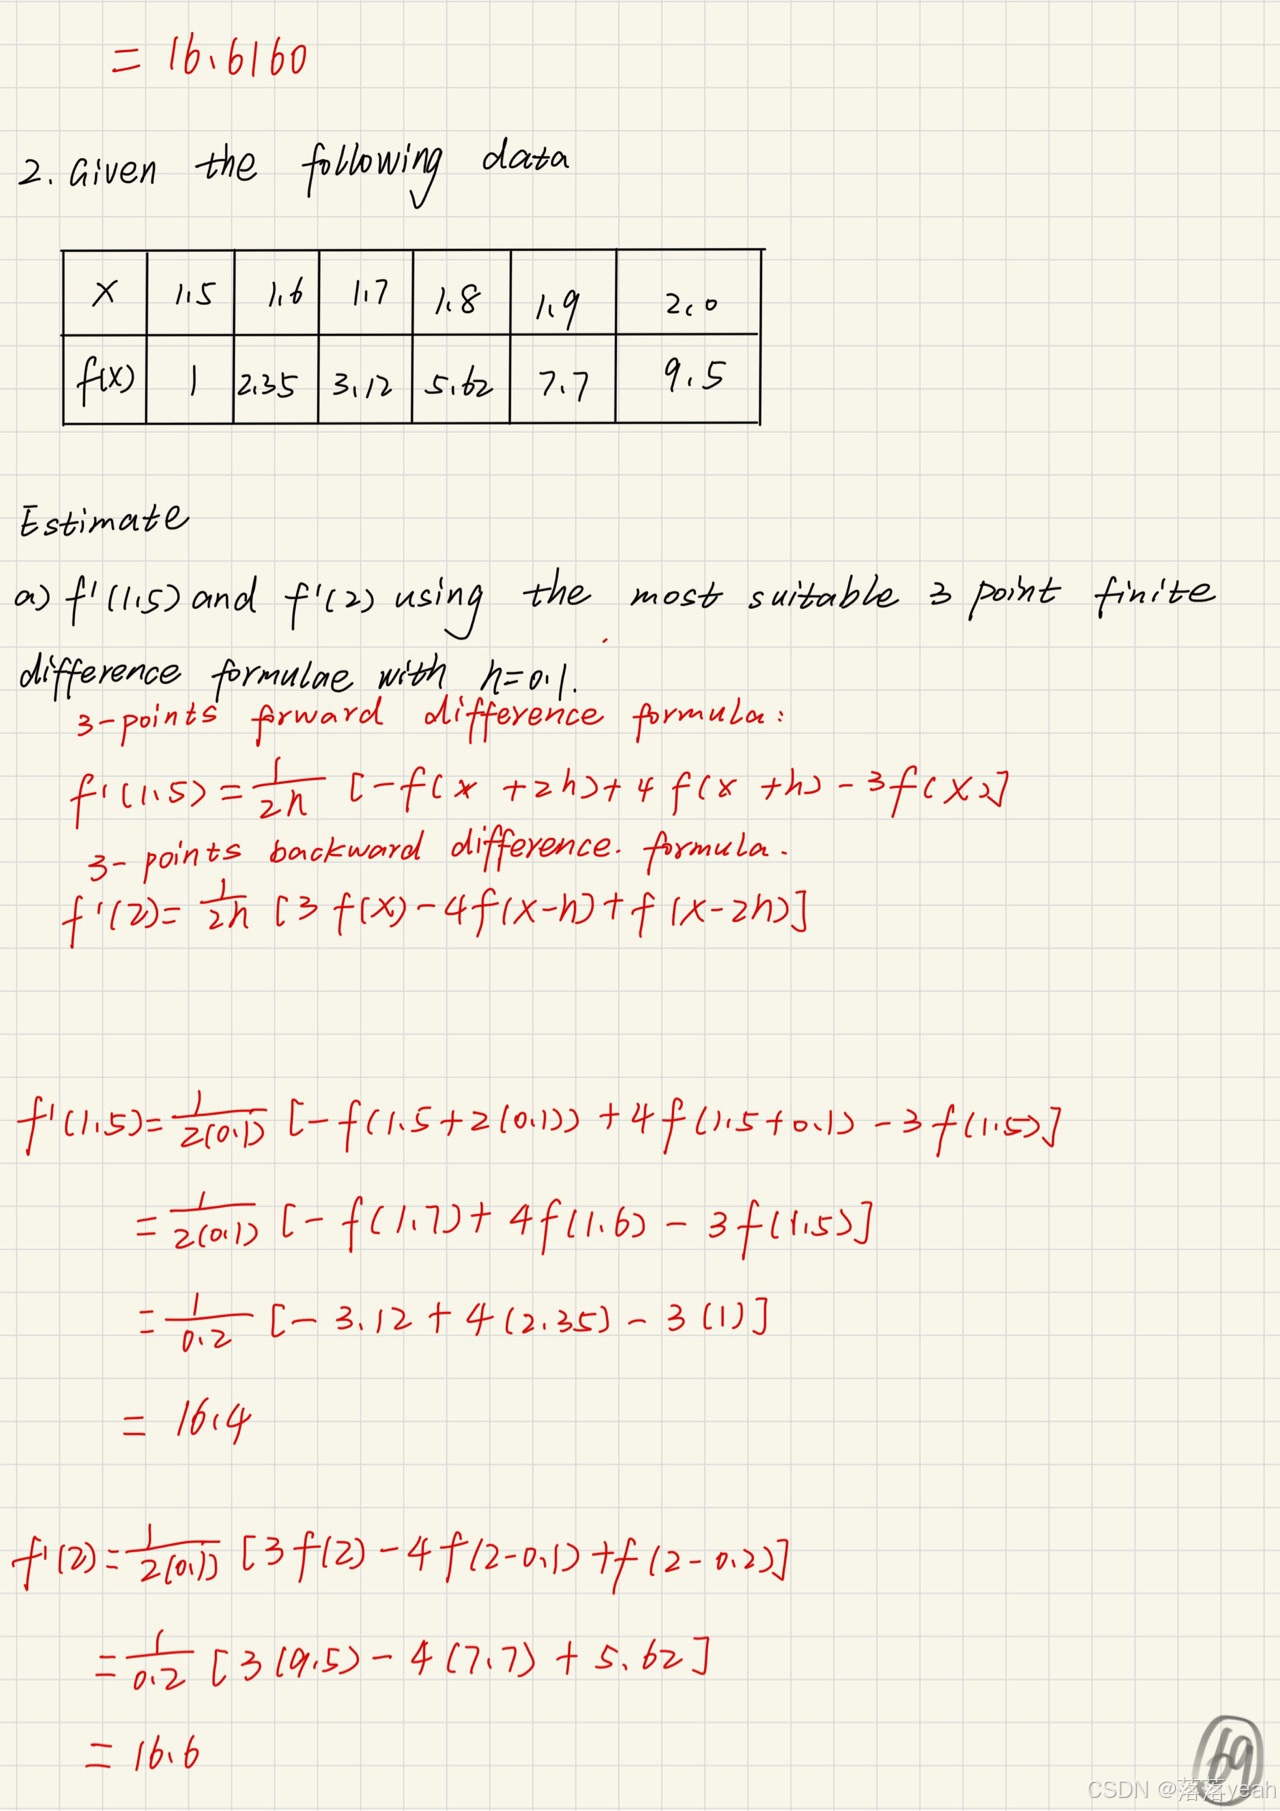 = 16.6160
2. Given the following data
x 1.5 1.6 1.7 1.8 1.9 2.0
f(x) 1 2.35 3.12 5.62 7.7 9.5
Estimate
a) f'(1.5) and f'(2) using the most suitable 3 point finite
difference formulae with h=0.1.
3-points forward difference formula:
f'(1.5) = 1/2h [-f(x+2h)+4f(x+h)-3f(x)]
3-points backward difference. formula.
f'(2)= 1/2h [3f(x)-4f(x-h)+f(x-2h)]
f'(1.5)= 1/2(0.1) [-f(1.5+2(0.1))+4f(1.5+0.1)-3f(1.5)]
= 1/2(0.1) [-f(1.7)+4f(1.6)-3f(1.5)]
= 1/0.2 [-3.12+4(2.35)-3(1)]
= 16.4
f'(2)= 1/2(0.1) [3f(2)-4f(2-0.1)+f(2-0.2)]
= 1/0.2 [3(9.5)-4(7.7)+5.62]
= 16.6
69
CSDN @落落yeah